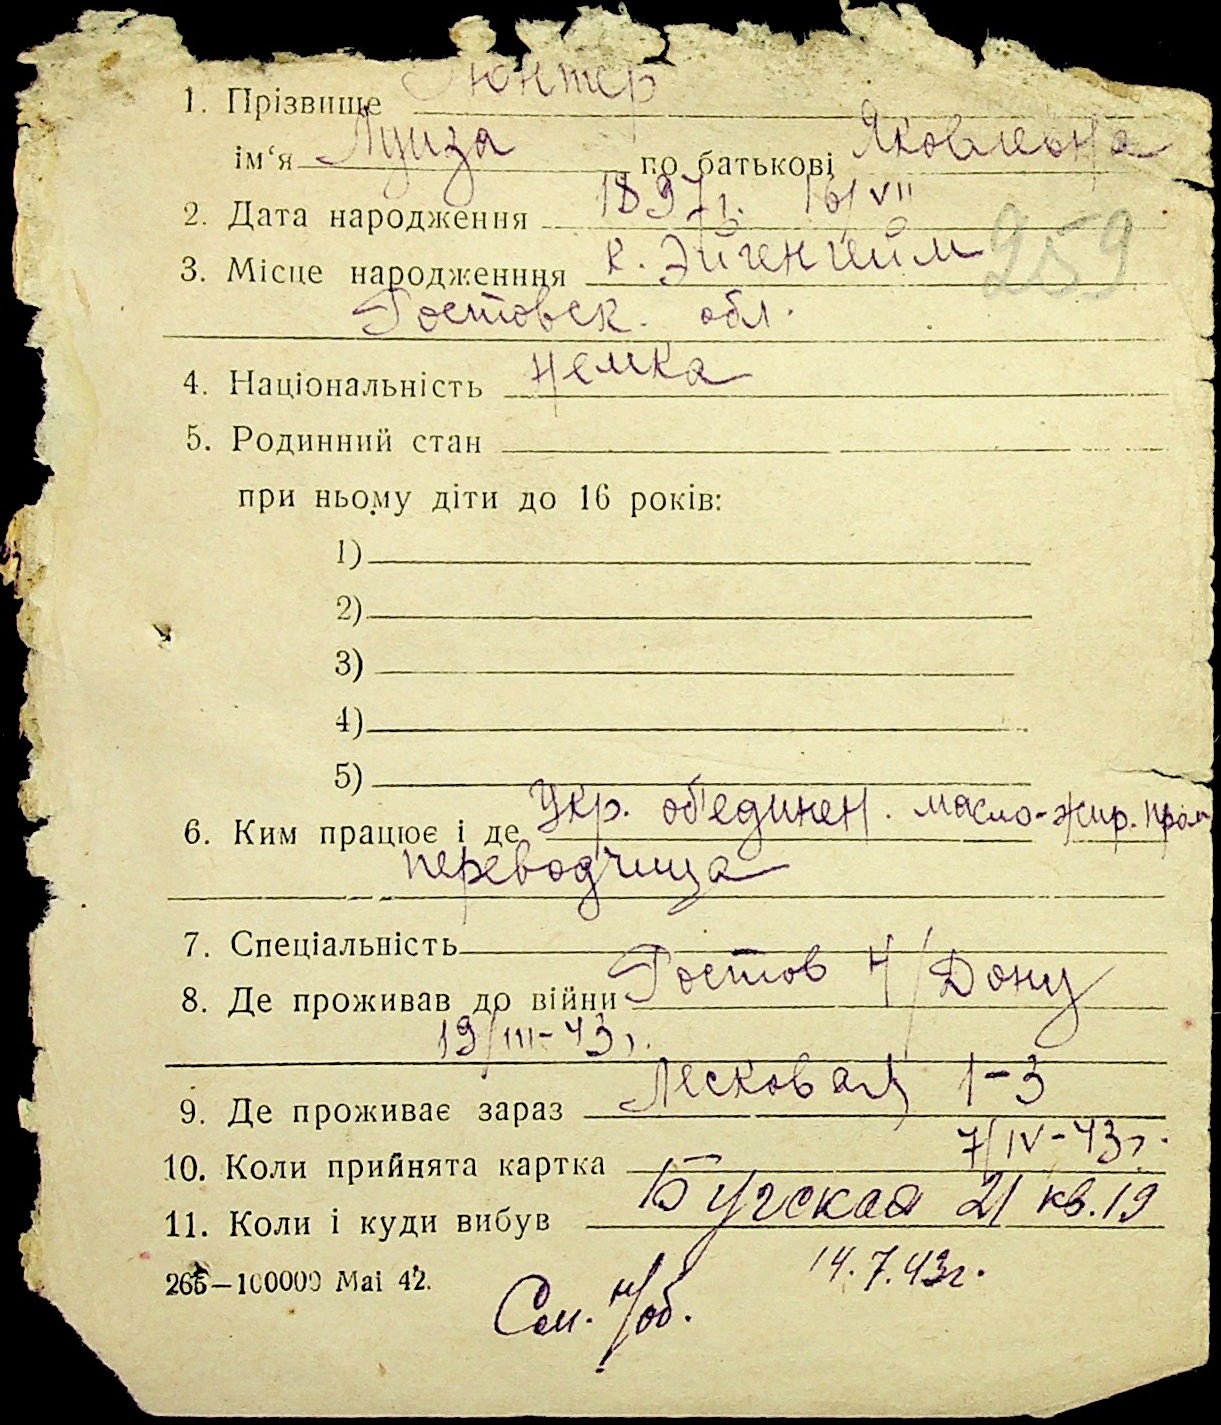 1. Прізвище Гюнтер
ім‘я Луиза по батькові Яковлевна
2. Дата народження 1897 г. 16/VII
3. Місце народженння к. Эйгенгейм 259
Ростовск. обл.
4. Національність немка
5. Родинний стан
при ньому діти до 16 років:
1)
2)
3)
4)
5)
6. Ким працює і де Укр. об'единен. масло-жир. пром
переводчица
7. Спеціальність
8. Де проживав до війни Ростов н/Дону
19/III-43 г.
9. Де проживає зараз Лесковая 1-3
10. Коли прийнята картка 7/IV-43 г.
11. Коли і куди вибув Бугская 21 кв. 19
265—100000 Mai 42. 14.7.43 г.
См. н/об.